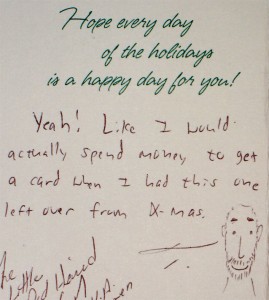 Hope every day
of the holidays
is a happy day for you!
Yeah! Like I would
actually spend money to get
a card when I had this one
left over from X-mas.
The
Little
Red Haired